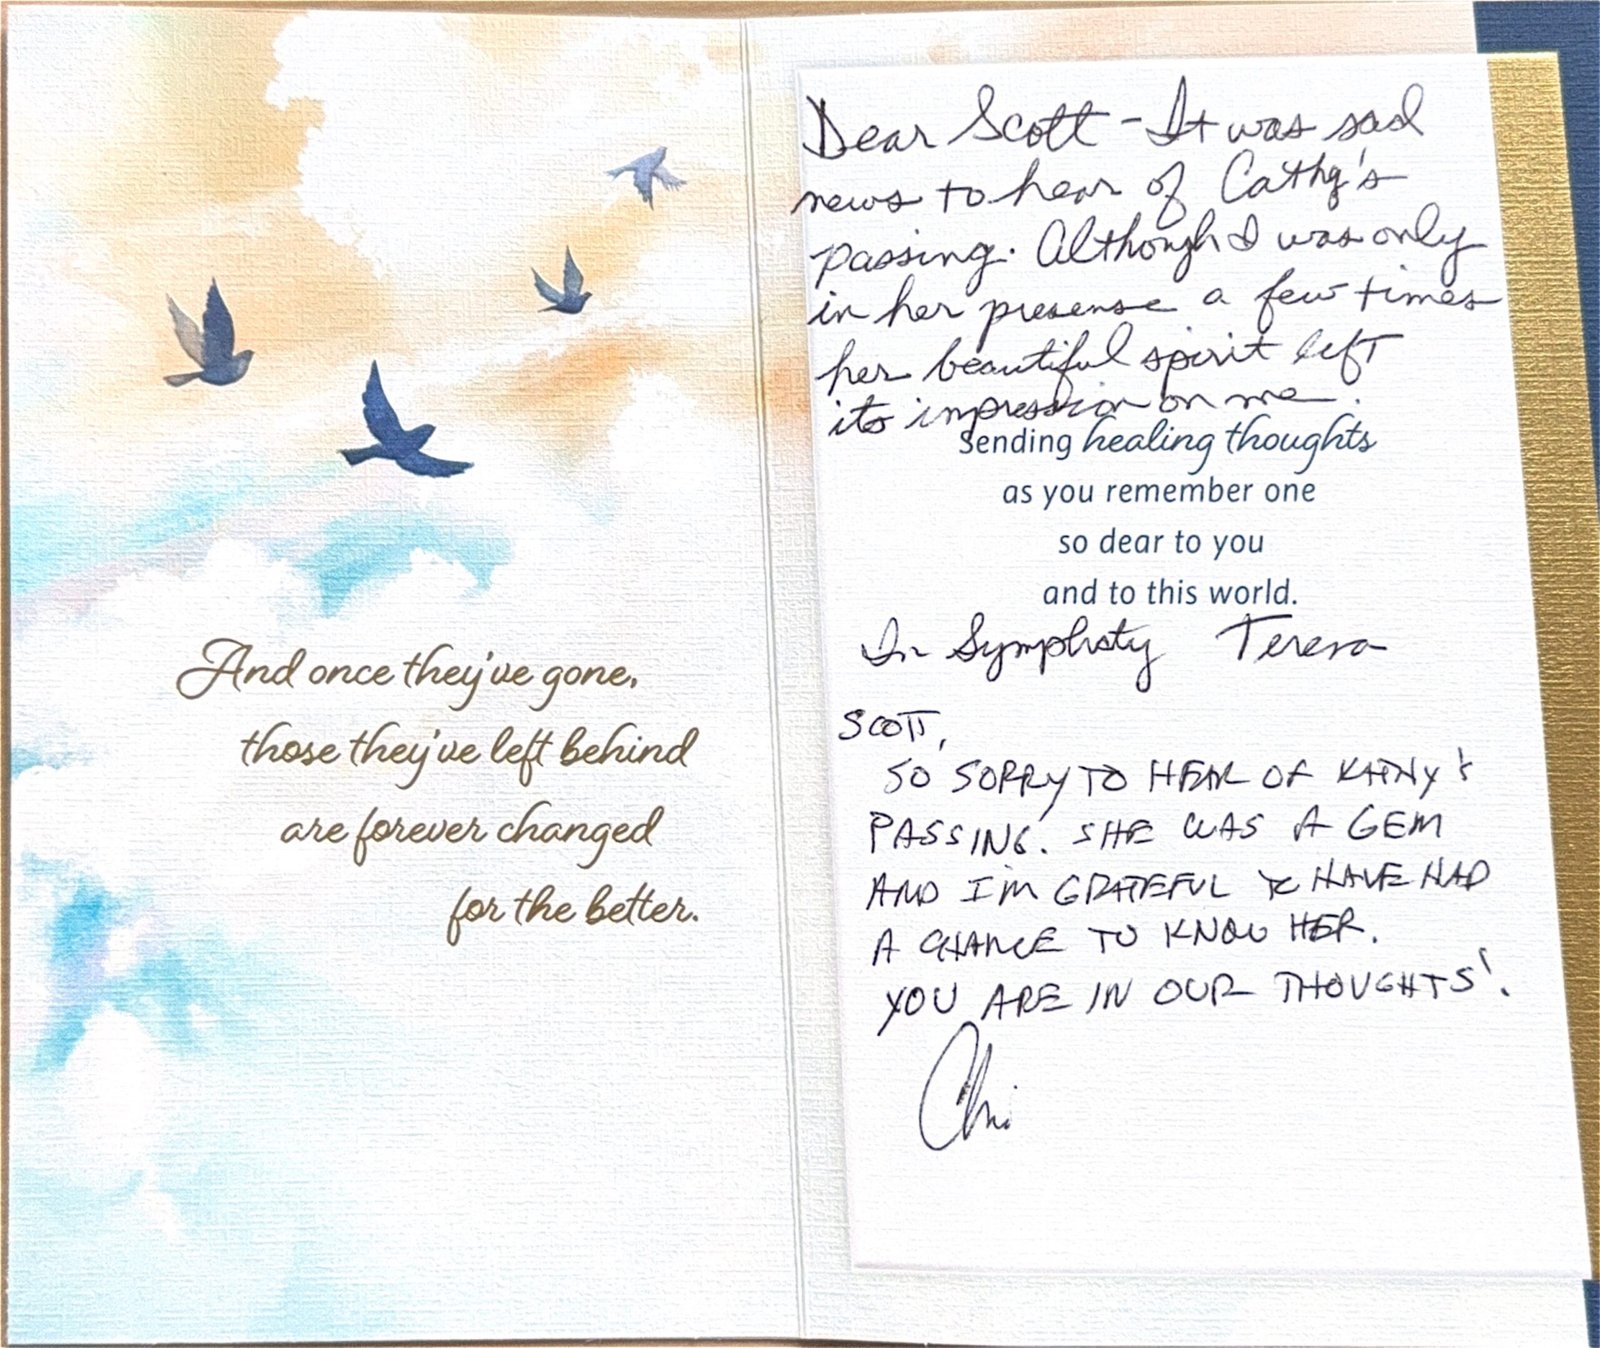 And once they've gone,
those they've left behind
are forever changed
for the better.
Dear Scott - It was sad
news to hear of Cathy's
passing. Although I was only
in her presense a few times
her beautiful spirit left
its impression on me.
Sending healing thoughts
as you remember one
so dear to you
and to this world.
In Symphsty Teresa
SCOTT,
SO SORRY TO HEAR OF KATHY'S
PASSING. SHE WAS A GEM
AND I'M GRATEFUL to HAVE HAD
A CHANCE TO KNOW HER.
YOU ARE IN OUR THOUGHTS!